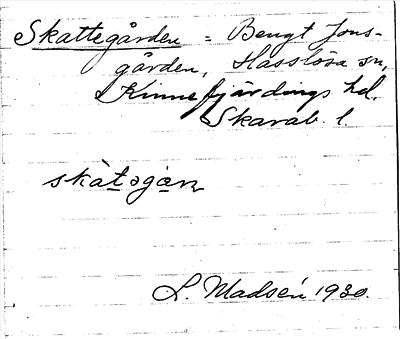 Skattegården = Bengt Jons-
gården, Hasslösa sn,
Kinnefjärdings hd.
Skarab. l.
skàt̲əga̲ɳ
L. Madsén 1930.